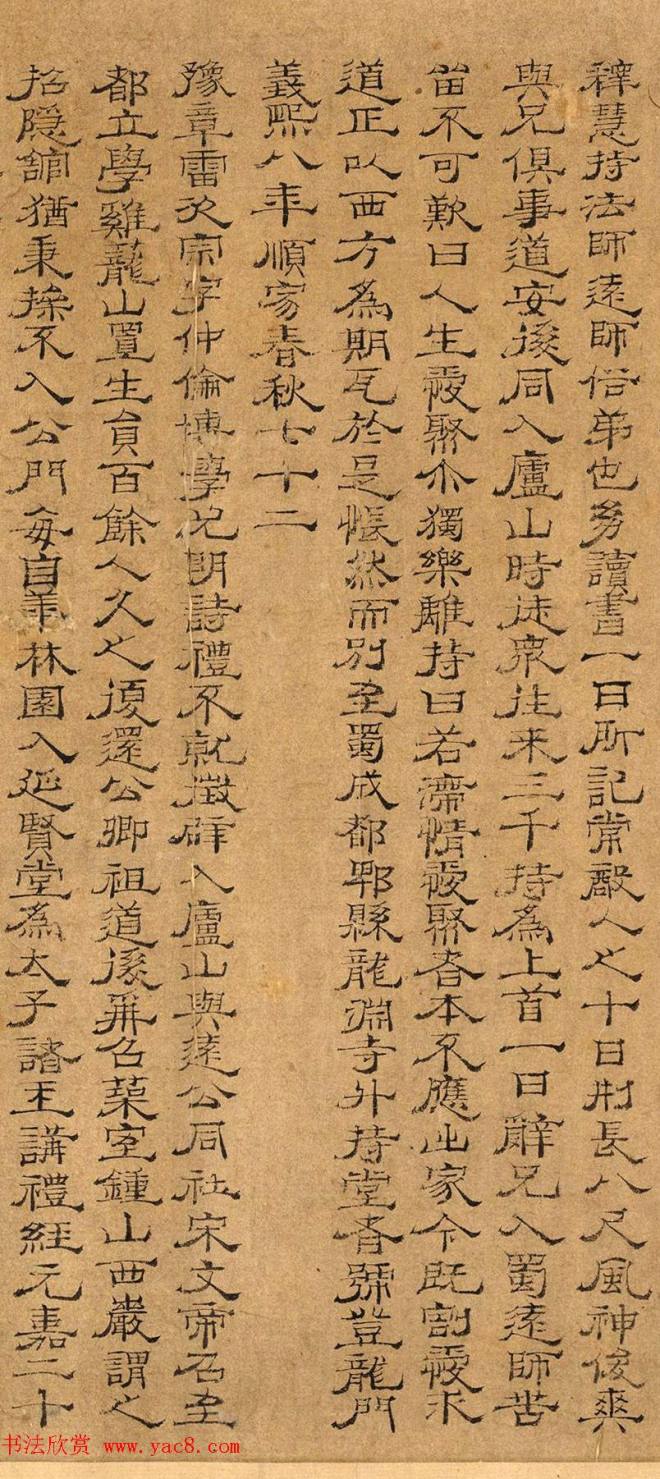 釋慧持法師遠師俗弟也多讀書一日所記常敵人之十日形長八尺風神俊爽
與兄俱事道安後同入廬山時徒眾往來三千持為上首一日辭兄入蜀遠師苦
留不可歎曰人生愛聚尒獨樂離持曰若滯情愛聚者本不應出家今既割愛求
道正以西方為期耳於是悵然而別至蜀成都郫縣龍淵寺升持堂者號登龍門
義熙八年順寂春秋七十二
豫章雷次宗字仲倫博學尤明詩禮不就徵辟入廬山與遠公同社宋文帝召至
都立學雞蘢山置生員百餘人久之復還公卿祖道後再召築室鍾山西巖謂之
招隱館猶秉操不入公門每自華林園入延賢堂為太子諸王講禮經元嘉二十
书法欣赏 www.yac8.com